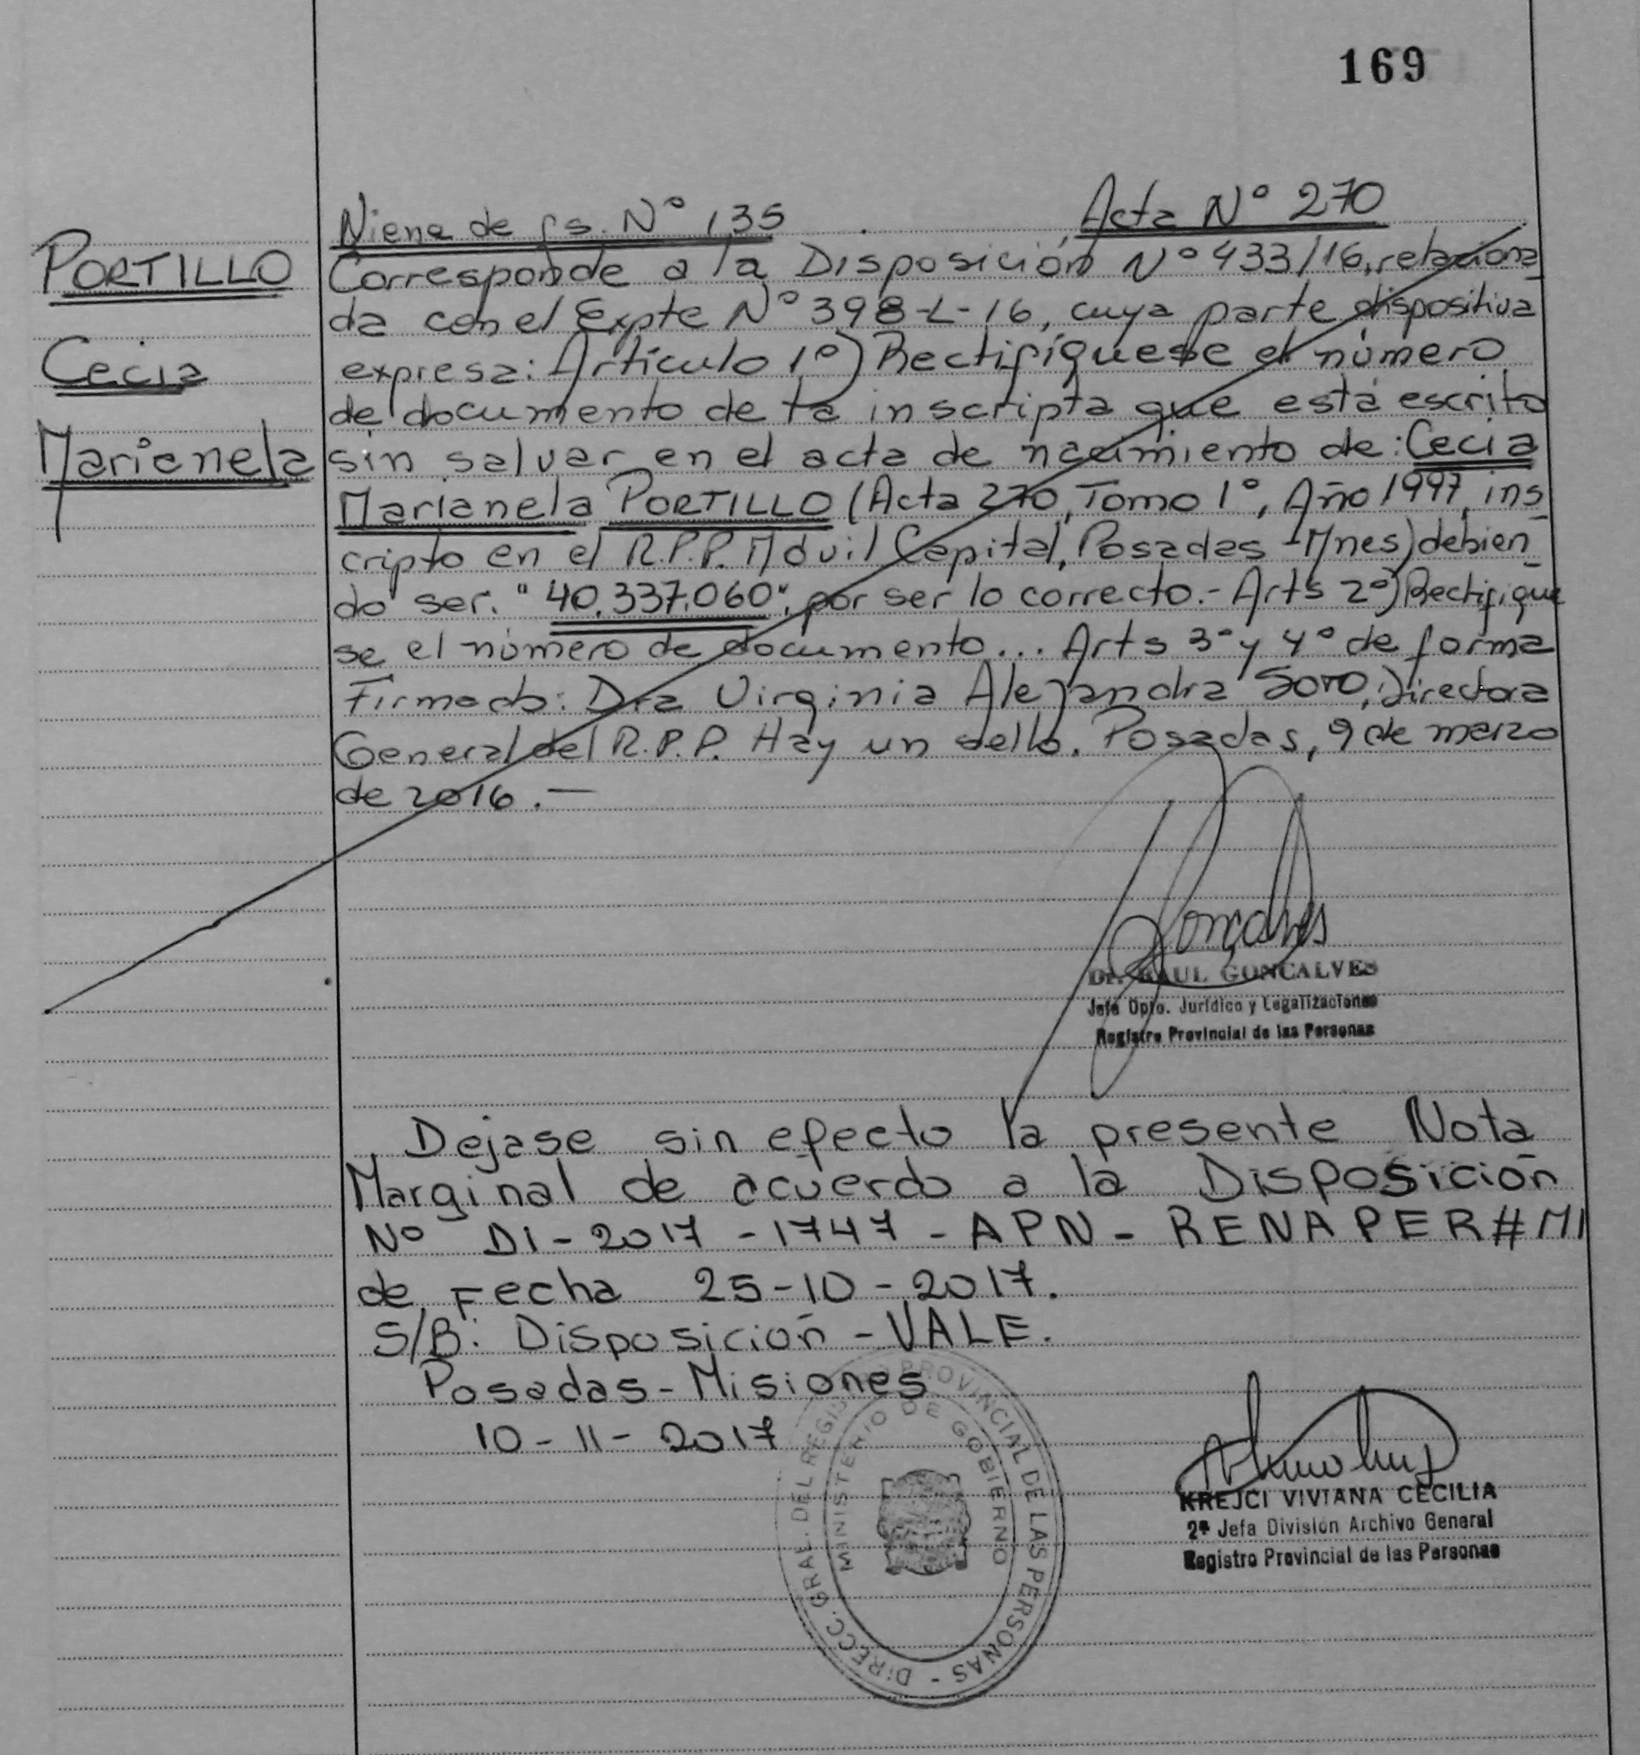 169
PORTILLO
Cecia
Marianela
Viene de fs. Nº 135
Acta Nº 270
Corresponde a la Disposición Nº 433/16, relaciona
da con el Expte Nº 398-L-16, cuya parte dispositiva
expresa: Artículo 1º) Rectifíquese el número
de documento de la inscripta que está escrito
sin salvar en el acta de nacimiento de: Cecia
Marianela PORTILLO (Acta 270, Tomo 1º, Año 1997, ins
cripto en el R.P.P. Móvil Capital, Posadas - Mnes) debien
do ser. "40.337.060", por ser lo correcto.- Arts 2º) Rectifíque
se el número de documento... Arts 3º y 4º de forma
Firmado: Dra Virginia Alejandra SOTO, Directora
General del R.P.P. Hay un sello. Posadas, 9 de marzo
de 2016.-
Goncalves
Dr. RAUL GONCALVES
Jefe Dpto. Jurídico y Legalizaciones
Registro Provincial de las Personas
Dejase sin efecto la presente Nota
Marginal de acuerdo a la Disposición
Nº DI-2017-1747-APN-RENAPER#MI
de Fecha 25-10-2017.
S/B: Disposición - VALE.
Posadas - Misiones
10-11-2017
DIRECC. GRAL. DEL REGISTRO PROVINCIAL DE LAS PERSONAS -
MINISTERIO DE GOBIERNO
KREJCI VIVIANA CECILIA
2ª Jefa División Archivo General
Registro Provincial de las Personas